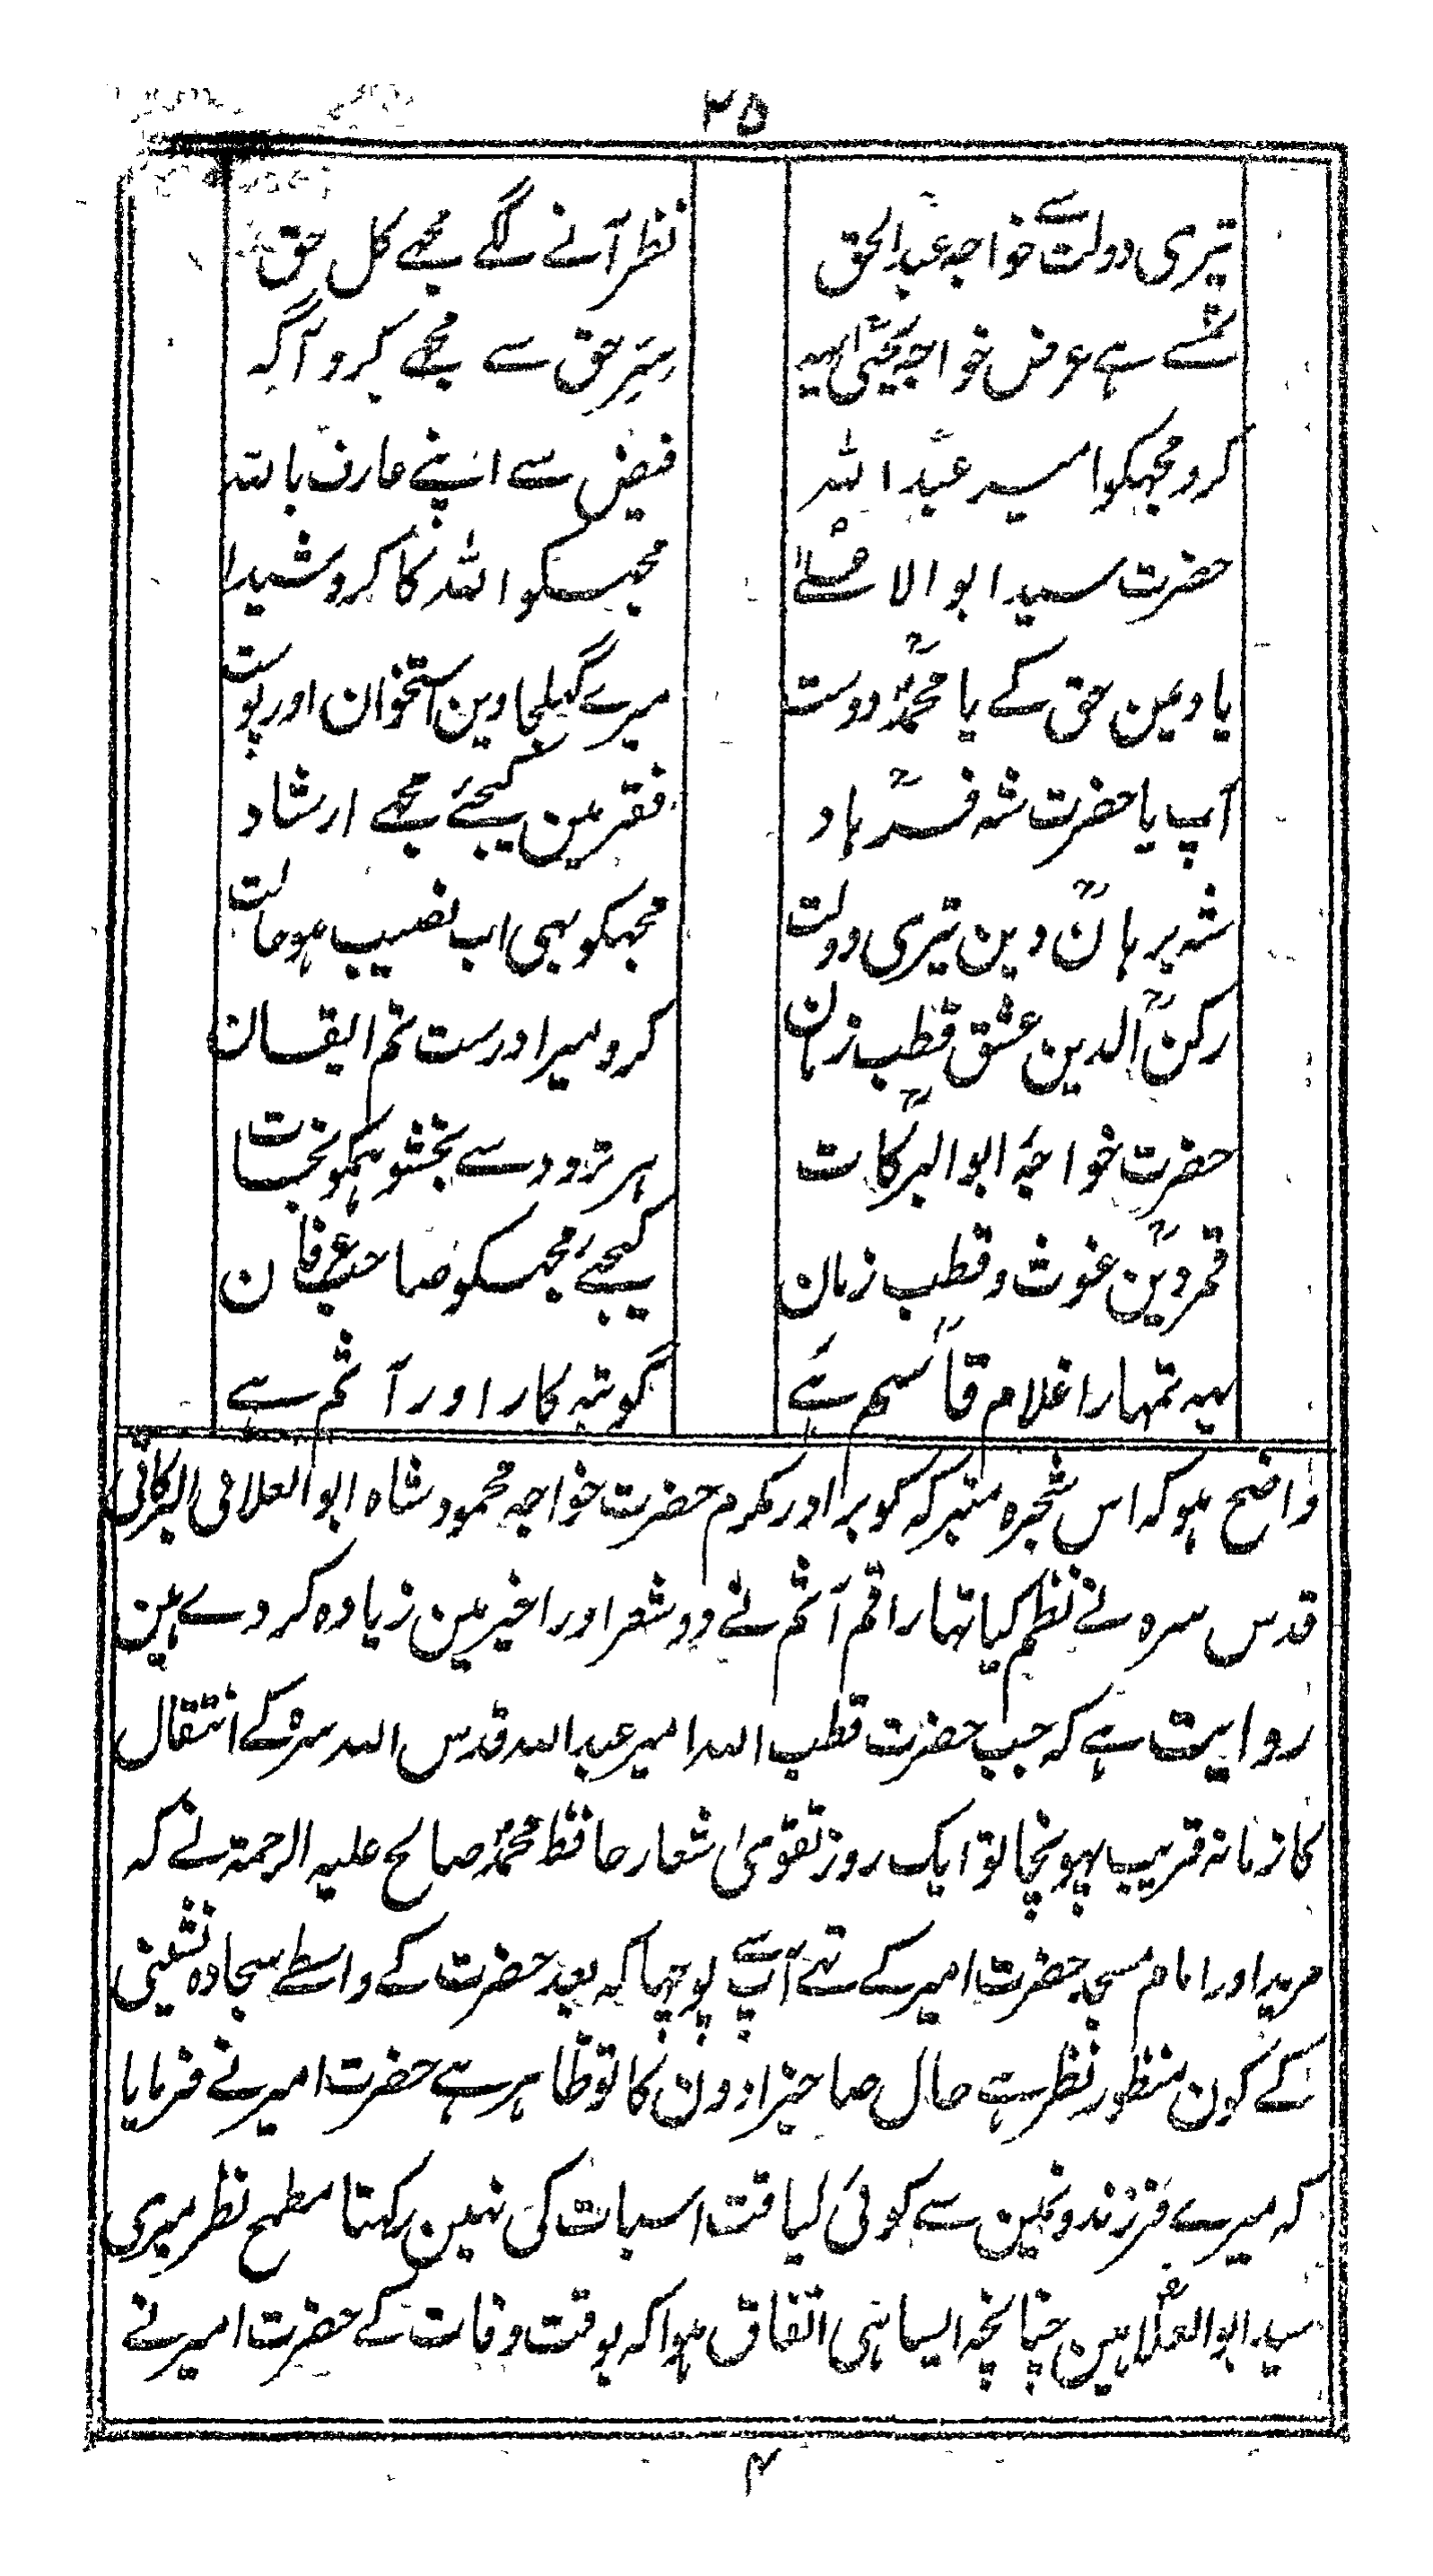 ۲۵
تیری دولت سے خواجہ عبدالحق نظر آنے لگے مجھے کل حق
تمسے ہے عرض خواجہ یحییٰ یہہ سِرِّ حق سے مجھے کرو آگہ
کرو مجہکو امیر عبداللہ فیض سے اپنے عارف باللہ
حضرت سید ابوالاعلےٰ مجہکو اللہ کا کرو شیدا
یاد مین حق کے یا محمد دوست میرے گہلجاوین استخوان اور پوست
آپ یا حضرت شہ فرہاد فقر مین کیجئے مجھے ارشاد
شہ برہان دین تیری دولت مجہکو بہی اب نصیب ہو حالت
رکن الدین عشق قطب زمان کرو میرا درست تم ایقان
حضرت خواجۂ ابوالبرکات ہر تردد سے بخشو ہمکو نجات
قمر دین غوث و قطب زمان کیجئے مجہکو صاحب عرفان
یہہ تمہارا غلام قاسم ہے گو تبہ کار اور آثم ہے
واضح ہو کہ اس شجرہ متبرکہ کو برادر مکرم حضرت خواجہ محمود شاہ ابوالعلائی البرکاتی
قدس سرہ نے نظم کیا تہا راقم آثم نے دو شعر اور اخیر مین زیادہ کردے ہین
روایت ہے کہ جب حضرت قطب اللہ امیر عبداللہ قدس اللہ سرہ کے انتقال
کا زمانہ قریب پہونچا تو ایک روز تقویٰ شعار حافظ محمد صالح علیہ الرحمۃ نے کہ
مرید اور امام مسجد حضرت امیر کے تہے آپ سے پوچہا کہ بعد حضرت کے واسطے سجادہ نشینی
کے کون منظور نظر ہے حال صاحبزادون کا تو ظاہر ہے حضرت امیر نے فرمایا
کہ میرے فرزندونمین سے کوئی لیاقت اسبات کی نہین رکہتا مطمح نظر میری
سید ابوالعلا ہین چنانچہ ایسا ہی اتفاق ہوا کہ بوقت وفات کے حضرت امیر نے
۴